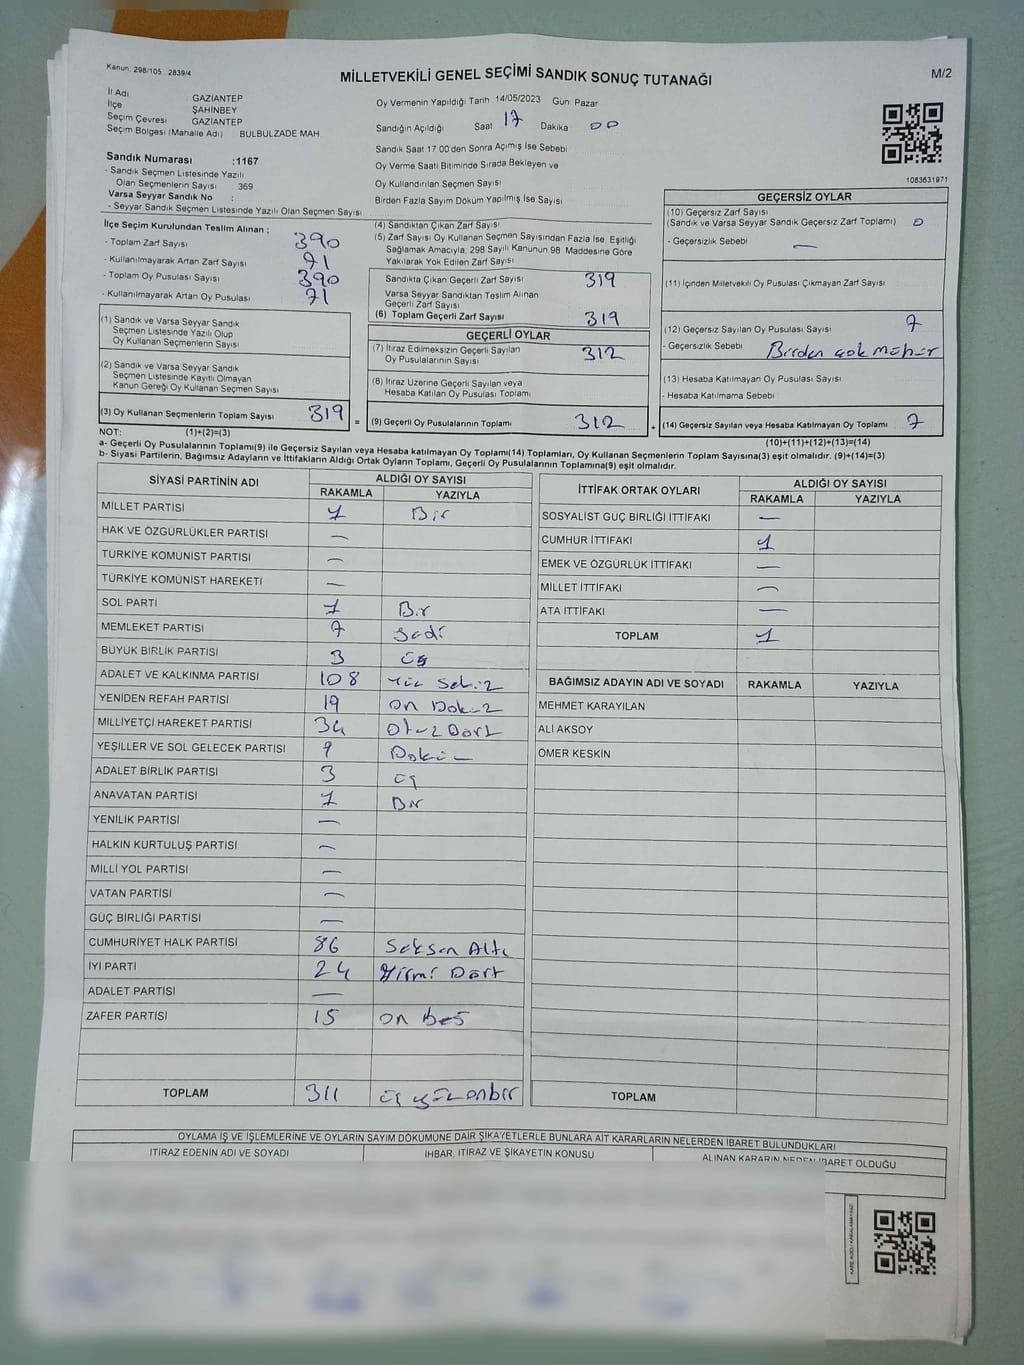 Kanun: 298/105, 2839/4
MİLLETVEKİLİ GENEL SEÇİMİ SANDIK SONUÇ TUTANAĞI
M/2
İl Adı GAZİANTEP
İlçe ŞAHİNBEY
Seçim Çevresi GAZİANTEP
Seçim Bölgesi (Mahalle Adı) BÜLBÜLZADE MAH
Sandık Numarası :1167
- Sandık Seçmen Listesinde Yazılı
Olan Seçmenlerin Sayısı 369
Varsa Seyyar Sandık No :
- Seyyar Sandık Seçmen Listesinde Yazılı Olan Seçmen Sayısı
Oy Vermenin Yapıldığı Tarih 14/05/2023 Gün Pazar
Sandığın Açıldığı Saat 17 Dakika 00
Sandık Saat 17 00'den Sonra Açılmış İse Sebebi
Oy Verme Saati Bitiminde Sırada Bekleyen ve
Oy Kullandırılan Seçmen Sayısı
Birden Fazla Sayım Döküm Yapılmış İse Sayısı
1083631971
İlçe Seçim Kurulundan Teslim Alınan ;
- Toplam Zarf Sayısı 390
- Kullanılmayarak Artan Zarf Sayısı 71
- Toplam Oy Pusulası Sayısı 390
- Kullanılmayarak Artan Oy Pusulası 71
(1) Sandık ve Varsa Seyyar Sandık
Seçmen Listesinde Yazılı Olup
Oy Kullanan Seçmenlerin Sayısı
(2) Sandık ve Varsa Seyyar Sandık
Seçmen Listesinde Kayıtlı Olmayan
Kanun Gereği Oy Kullanan Seçmen Sayısı
(3) Oy Kullanan Seçmenlerin Toplam Sayısı 319
(4) Sandıktan Çıkan Zarf Sayısı
(5) Zarf Sayısı Oy Kullanan Seçmen Sayısından Fazla İse, Eşitliği
Sağlamak Amacıyla, 298 Sayılı Kanunun 98. Maddesine Göre
Yakılarak Yok Edilen Zarf Sayısı
Sandıkta Çıkan Geçerli Zarf Sayısı 319
Varsa Seyyar Sandıktan Teslim Alınan
Geçerli Zarf Sayısı
(6) Toplam Geçerli Zarf Sayısı 319
GEÇERLİ OYLAR
(7) İtiraz Edilmeksizin Geçerli Sayılan
Oy Pusulalarının Sayısı 312
(8) İtiraz Üzerine Geçerli Sayılan veya
Hesaba Katılan Oy Pusulaları Toplamı
= (9) Geçerli Oy Pusulalarının Toplamı 312
GEÇERSİZ OYLAR
(10) Geçersiz Zarf Sayısı
(Sandık ve Varsa Seyyar Sandık Geçersiz Zarf Toplamı) 0
- Geçersizlik Sebebi —
(11) İçinden Milletvekili Oy Pusulası Çıkmayan Zarf Sayısı
(12) Geçersiz Sayılan Oy Pusulası Sayısı 7
- Geçersizlik Sebebi Birden çok mühür
(13) Hesaba Katılmayan Oy Pusulası Sayısı
- Hesaba Katılmama Sebebi
+ (14) Geçersiz Sayılan veya Hesaba Katılmayan Oy Toplamı 7
NOT: (1)+(2)=(3)
(10)+(11)+(12)+(13)=(14)
a- Geçerli Oy Pusulalarının Toplamı(9) ile Geçersiz Sayılan veya Hesaba katılmayan Oy Toplamı(14) Toplamları, Oy Kullanan Seçmenlerin Toplam Sayısına(3) eşit olmalıdır. (9)+(14)=(3)
b- Siyasi Partilerin, Bağımsız Adayların ve İttifakların Aldığı Ortak Oyların Toplamı, Geçerli Oy Pusulalarının Toplamına(9) eşit olmalıdır.
SİYASİ PARTİNİN ADI ALDIĞI OY SAYISI
RAKAMLA YAZIYLA
MİLLET PARTİSİ 1 Bir
HAK VE ÖZGÜRLÜKLER PARTİSİ —
TÜRKİYE KOMÜNİST PARTİSİ —
TÜRKİYE KOMÜNİST HAREKETİ —
SOL PARTİ 1 Bir
MEMLEKET PARTİSİ 7 Yedi
BÜYÜK BİRLİK PARTİSİ 3 üç
ADALET VE KALKINMA PARTİSİ 108 Yüz Sekiz
YENİDEN REFAH PARTİSİ 19 on Dokuz
MİLLİYETÇİ HAREKET PARTİSİ 34 Otuz Dört
YEŞİLLER VE SOL GELECEK PARTİSİ 9 Dokuz
ADALET BİRLİK PARTİSİ 3 üç
ANAVATAN PARTİSİ 1 Bir
YENİLİK PARTİSİ —
HALKIN KURTULUŞ PARTİSİ —
MİLLİ YOL PARTİSİ —
VATAN PARTİSİ —
GÜÇ BİRLİĞİ PARTİSİ —
CUMHURİYET HALK PARTİSİ 86 Seksen Altı
İYİ PARTİ 24 Yirmi Dört
ADALET PARTİSİ —
ZAFER PARTİSİ 15 on beş
TOPLAM 311 üç yüz onbir
İTTİFAK ORTAK OYLARI ALDIĞI OY SAYISI
RAKAMLA YAZIYLA
SOSYALİST GÜÇ BİRLİĞİ İTTİFAKI —
CUMHUR İTTİFAKI 1
EMEK VE ÖZGÜRLÜK İTTİFAKI —
MİLLET İTTİFAKI —
ATA İTTİFAKI —
TOPLAM 1
BAĞIMSIZ ADAYIN ADI VE SOYADI RAKAMLA YAZIYLA
MEHMET KARAYILAN
ALİ AKSOY
ÖMER KESKİN
TOPLAM
OYLAMA İŞ VE İŞLEMLERİNE VE OYLARIN SAYIM DÖKÜMÜNE DAİR ŞİKAYETLERLE BUNLARA AİT KARARLARIN NELERDEN İBARET BULUNDUKLARI
İTİRAZ EDENİN ADI VE SOYADI İHBAR, İTİRAZ VE ŞİKAYETİN KONUSU ALINAN KARARIN NEDEN İBARET OLDUĞU
KARE KODU KARALAMAYINIZ!